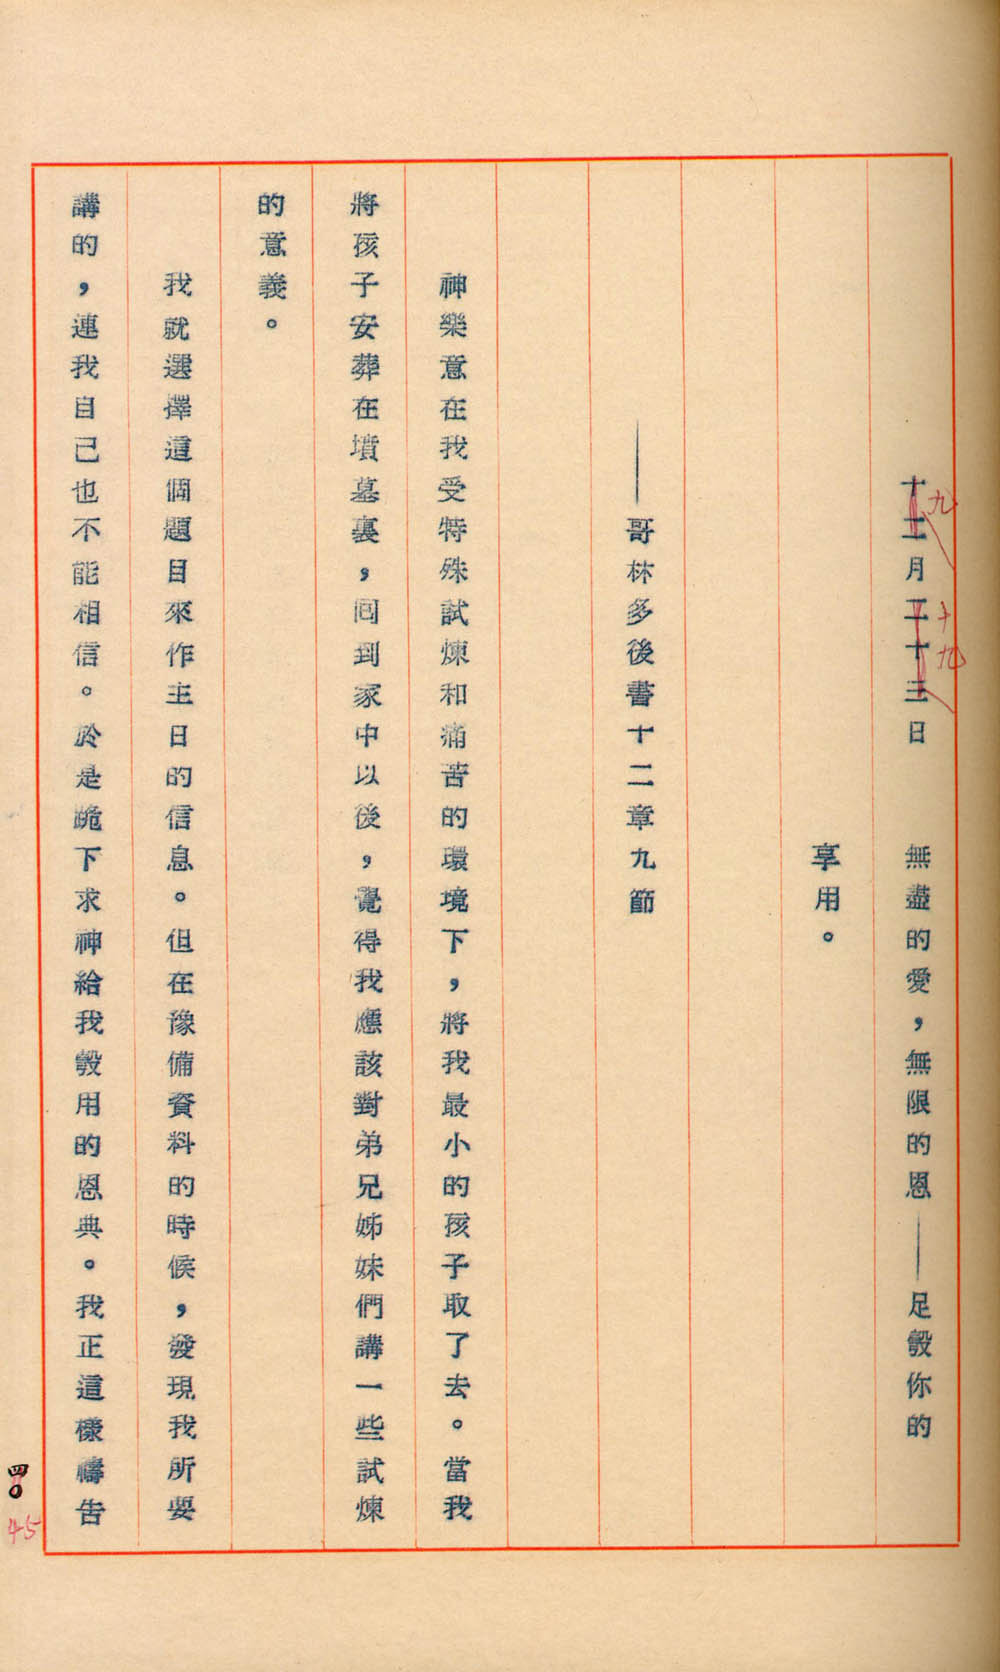 十二月二十三日　無盡的愛，無限的恩——足彀你的
九
十九
享用。
——哥林多後書十二章九節
神樂意在我受特殊試煉和痛苦的環境下，將我最小的孩子取了去。當我
將孩子安葬在墳墓裏，囘到家中以後，覺得我應該對弟兄姊妹們講一些試煉
的意義。
我就選擇這個題目來作主日的信息。但在豫備資料的時候，發現我所要
講的，連我自己也不能相信。於是跪下求神給我彀用的恩典。我正這樣禱告
四〇
45